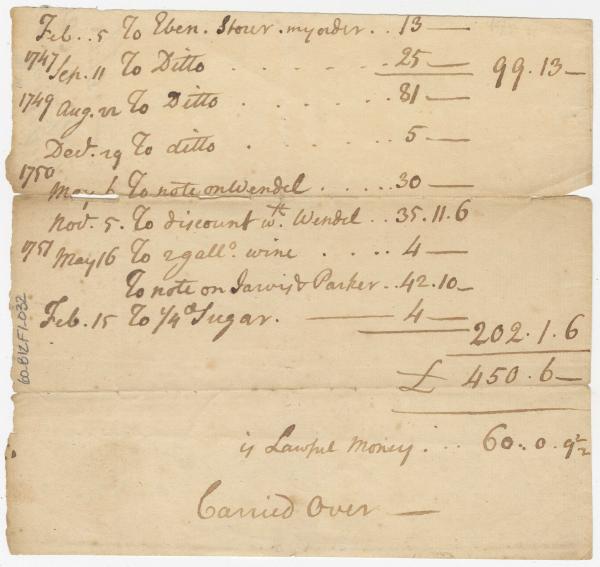 Feb. 5 To Eben. Storer. my order . . 13 —
1747
Sep. 11 To Ditto . . . . . 25 — 99.13 —
1749 Aug. 22 To Ditto . . . . . 81 —
Dec. 29 To ditto . . . . 5 —
1750
May 6 To note on Wendel . . . . . 30 —
Nov. 5. To discount wth. Wendel . . 35.11.6
1751 May 16 To 2 gallo. wine . . . . 4 —
To note on Jarvis & Parker . . 42.10 —
Feb. 15 To 1/4 Sugar. — 4 —
202.1.6
£ 450.6 —
is Lawful Money . . . 60..0.9
Carried Over —
60-812.F1-032